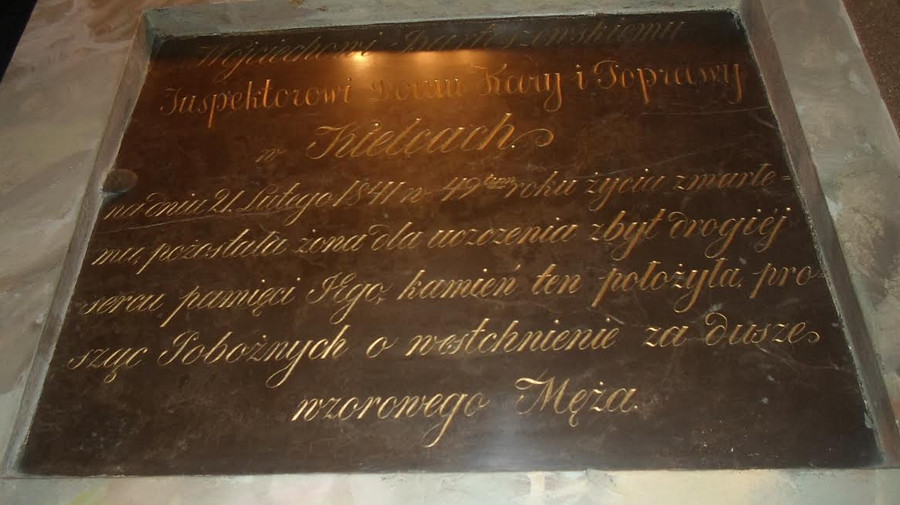 Wojciechowi
Inspektorowi Domu Kary i Poprawy
w Kielcach
na dniu 21. Lutego 1841 w 49tym roku życia zmarłe=
mu, pozostała żona dla uczczenia zbyt drogiéj
sercu, pamięci Jego, kamień ten położyła, pro=
sząc Pobożnych o westchnienie za dusze
wzorowego Męża.